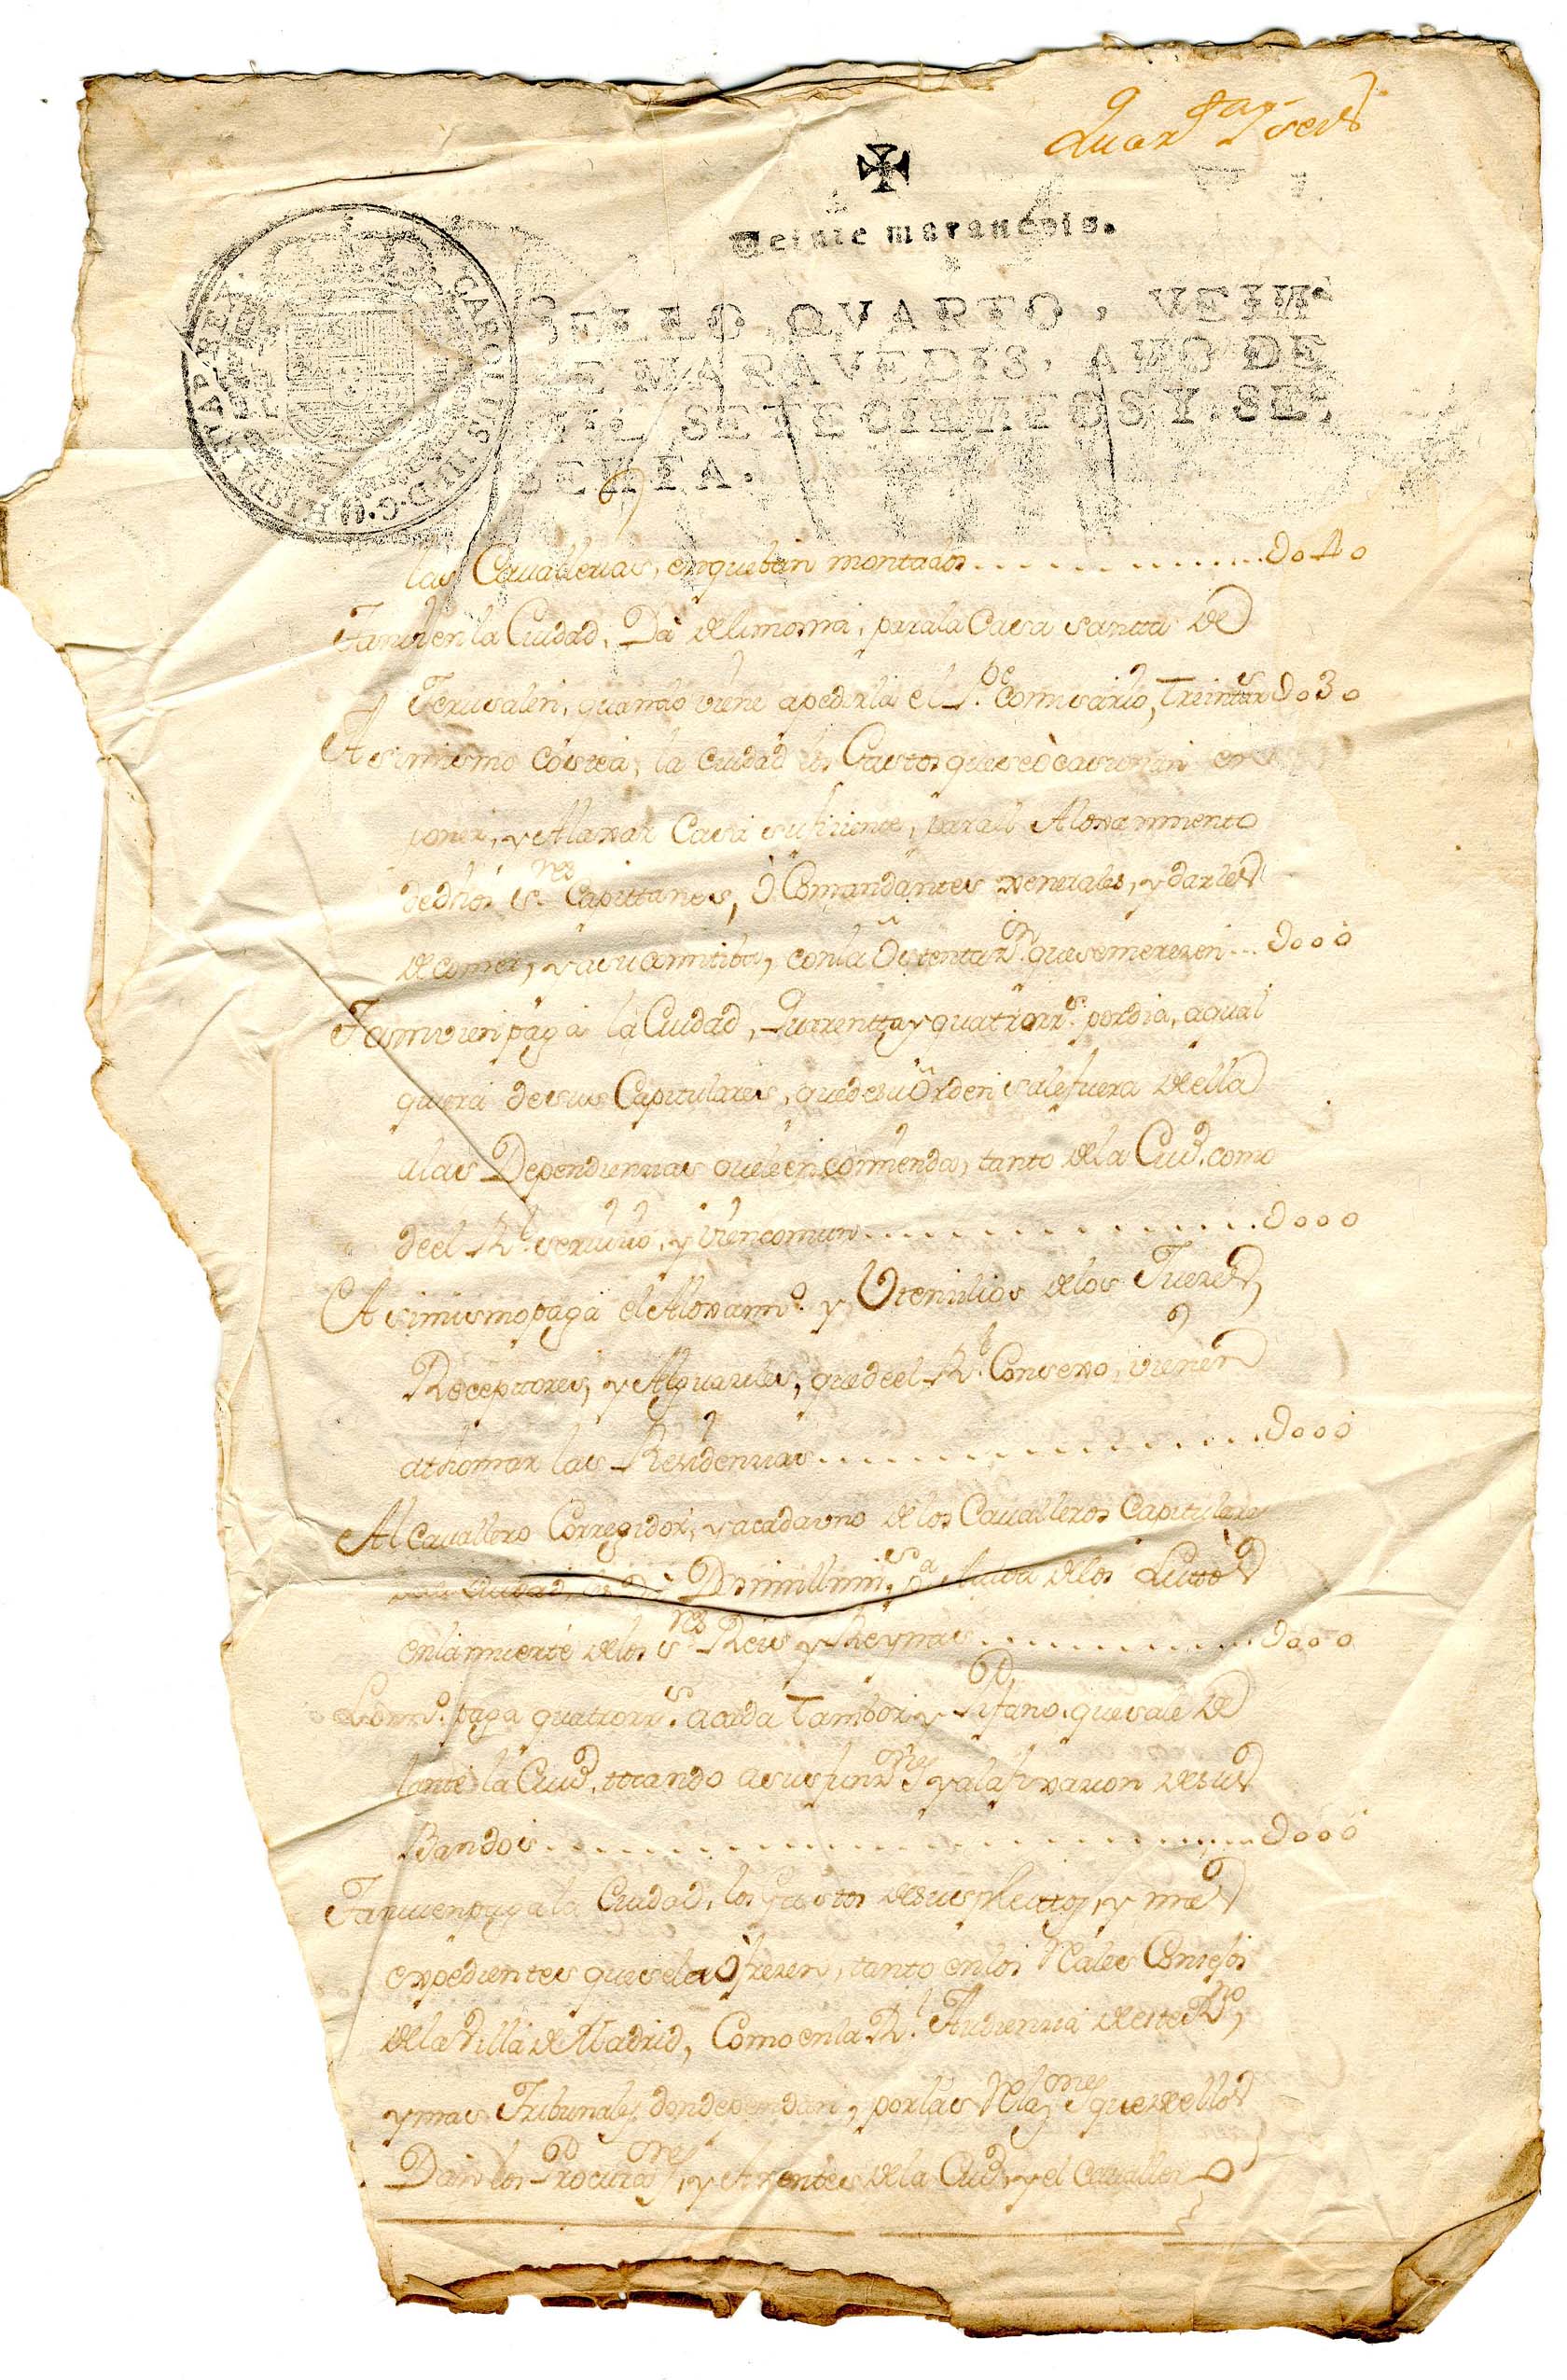 Quar.ta y seis
Veinte maravedis.
SELLO QVARTO, VEIN-
TE MARAVEDIS, AÑO DE
MIL SETECIENTOS Y SE-
SENTA.
CAROLUS III D. G. HISPANIAR. REX
las Cauallerias, en que btan montados ............ Do4o
Tamvien la Ciudad, Da de limosna, para la Cassa santta de
Jerusalen, quando viene a pedirla el P.e comisario, treinta rs Do3o
Asimismo costea, la Ciudad los Gastos que se ocasionan en
poner, y Alaxar Casa sufiziente, para el Aloxamiento
de dhos s.res Capittanes, ò Comandantes xenerales, y darles
de comer, y a su comitiba, con la Ostentaz.on que se merezen... Dooo
Tamvien paga la Ciudad, Quarentta y quatro rr.s por dia, a qual
quiera de sus Capitulares, que de su Orden sale fuera de ella
a las Dependienzias que le encomienda, tanto de la Ciud. como
de el R.l servizio, y vien comun ............ Dooo
Asimismo paga el Aloxam.o y Vtensilios de los Juezes,
Rezeptores, y Alguaziles, que de el R.l Consexo, vienen
a thomar las Residenzias ............ Dooo
Al Cauallero Correxidor, y a cada uno de los Caualleros Capitulares
de la Ciudad, se Dà Dosmill mrs. p.a Aiuda de los Lutos
en la muerte de los s.res Reis y Reynas ............ Dooo
Lo mo. paga quatro rr.s a cada Tambor y Pifano, que sale de
lante la Ciud. tocando a sus funz.nes y a la fixazion de sus
Bandos ............ Dooo
Tamvien paga la Ciudad, los gastos de sus pleittos, y mas
expedientes que se la Ofrezen, tanto en los Rales Consejos
de la Villa de Madrid, Como en la R.l Audienzia de este R.no,
y mas Tribunales donde pendan, por las Relaz.ones que de ellos
Dan los Procurad.ores, y Axentes de la Ciud. y el Cauallero